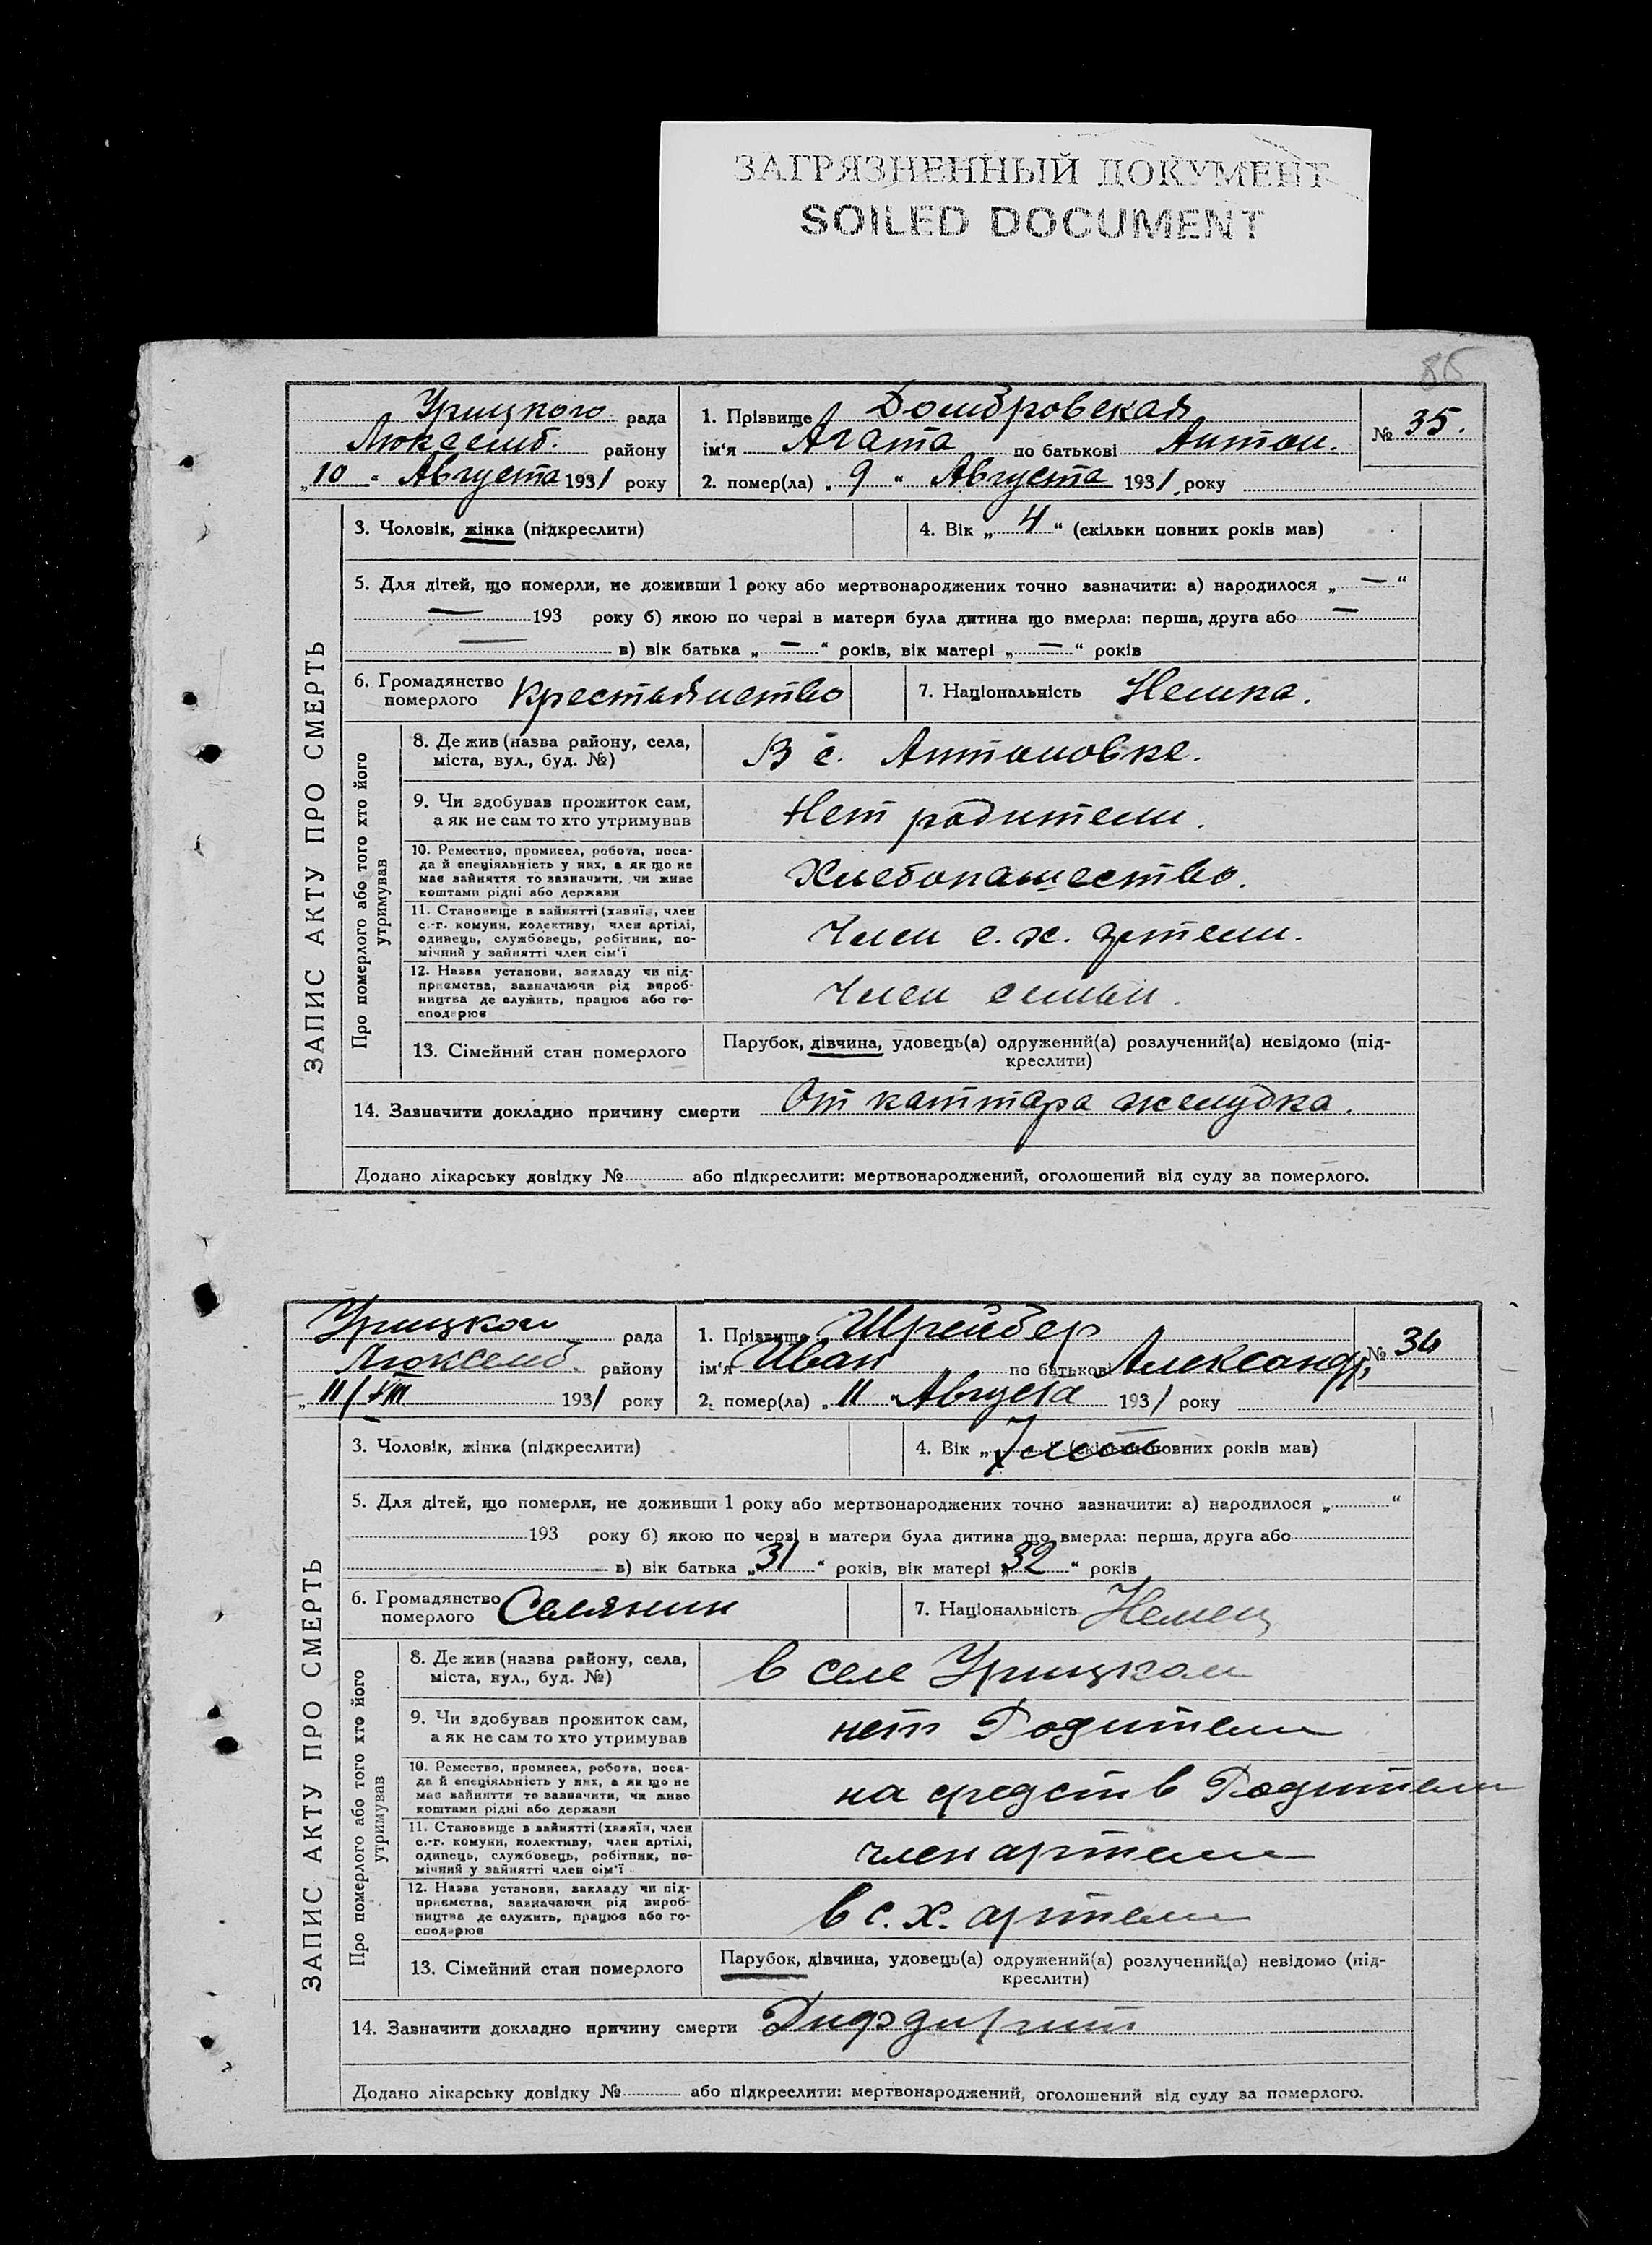 ЗАГРЯЗНЕННЫЙ ДОКУМЕНТ
SOILED DOCUMENT
85
Урицкого рада
Люксемб. району
„10 “ Августа 1931 року
1. Прізвище Домбровская
ім‘я Агата по батькові Антон.
№ 35.
2. помер(ла) „ 9 “ Августа 1931. року
ЗАПИС АКТУ ПРО СМЕРТЬ
3. Чоловік, жінка (підкреслити)
4. Вік „ 4 “ (скільки повних років мав)
5. Для дітей, що померли, не доживши 1 року або мертвонароджених точно зазначити: а) народилося „ — “
— 193 року б) якою по черзі в матери була дитина що вмерла: перша, друга або —
— в) вік батька „ — “ років, вік матері „ — “ років
6. Громадянство померлого Крестьянство
7. Національність Немка.
Про померлого або того хто його утримував
8. Де жив (назва району, села,
міста, вул., буд. №)
В с. Антоновке.
9. Чи здобував прожиток сам,
а як не сам то хто утримував
Нет родители.
10. Ремество, промисел, робота, поса-
да й спеціяльність у них, а як що не
має зайняття то зазначити, чи живе
коштами рідні або держави
Хлебопашество.
11. Становище в зайнятті (хазяїн, член
с.-г. комуни, колективу, член артілі,
одинець, службовець, робітник, по-
мічний у зайнятті член сім‘ї
Член с. х. артели.
12. Назва установи, закладу чи під-
приємства, зазначаючи рід вироб-
ництва де служить, працює або го-
сподарює
Член семьи.
13. Сімейний стан померлого
Парубок, дівчина, удовець(а) одружений(а) розлучений(а) невідомо (під-
креслити)
14. Зазначити докладно причину смерти От каттара желудка.
Додано лікарську довідку № або підкреслити: мертвонароджений, оголошений від суду за померлого.
Урицком рада
Люксемб. району
„ 11/VIII 1931 року
1. Прізвище Шрейбер
ім‘я Иван по батькові Александр.
№ 36
2. помер(ла) „ 11 “ Августа 1931 року
ЗАПИС АКТУ ПРО СМЕРТЬ
3. Чоловік, жінка (підкреслити)
4. Вік „ 7 (скільки повних років мав)
5. Для дітей, що померли, не доживши 1 року або мертвонароджених точно зазначити: а) народилося „ “
193 року б) якою по черзі в матери була дитина що вмерла: перша, друга або
в) вік батька „ 31 “ років, вік матері „ 32 “ років
6. Громадянство померлого Селянин
7. Національність Немец
Про померлого або того хто його утримував
8. Де жив (назва району, села,
міста, вул., буд. №)
в селе Урицком
9. Чи здобував прожиток сам,
а як не сам то хто утримував
нет Родители
10. Ремество, промисел, робота, поса-
да й спеціяльність у них, а як що не
має зайняття то зазначити, чи живе
коштами рідні або держави
на средств Родители
11. Становище в зайнятті (хазяїн, член
с.-г. комуни, колективу, член артілі,
одинець, службовець, робітник, по-
мічний у зайнятті член сім‘ї
член артели
12. Назва установи, закладу чи під-
приємства, зазначаючи рід вироб-
ництва де служить, працює або го-
сподарює
в с. х. артели
13. Сімейний стан померлого
Парубок, дівчина, удовець(а) одружений(а) розлучений(а) невідомо (під-
креслити)
14. Зазначити докладно причину смерти
Додано лікарську довідку № або підкреслити: мертвонароджений, оголошений від суду за померлого.